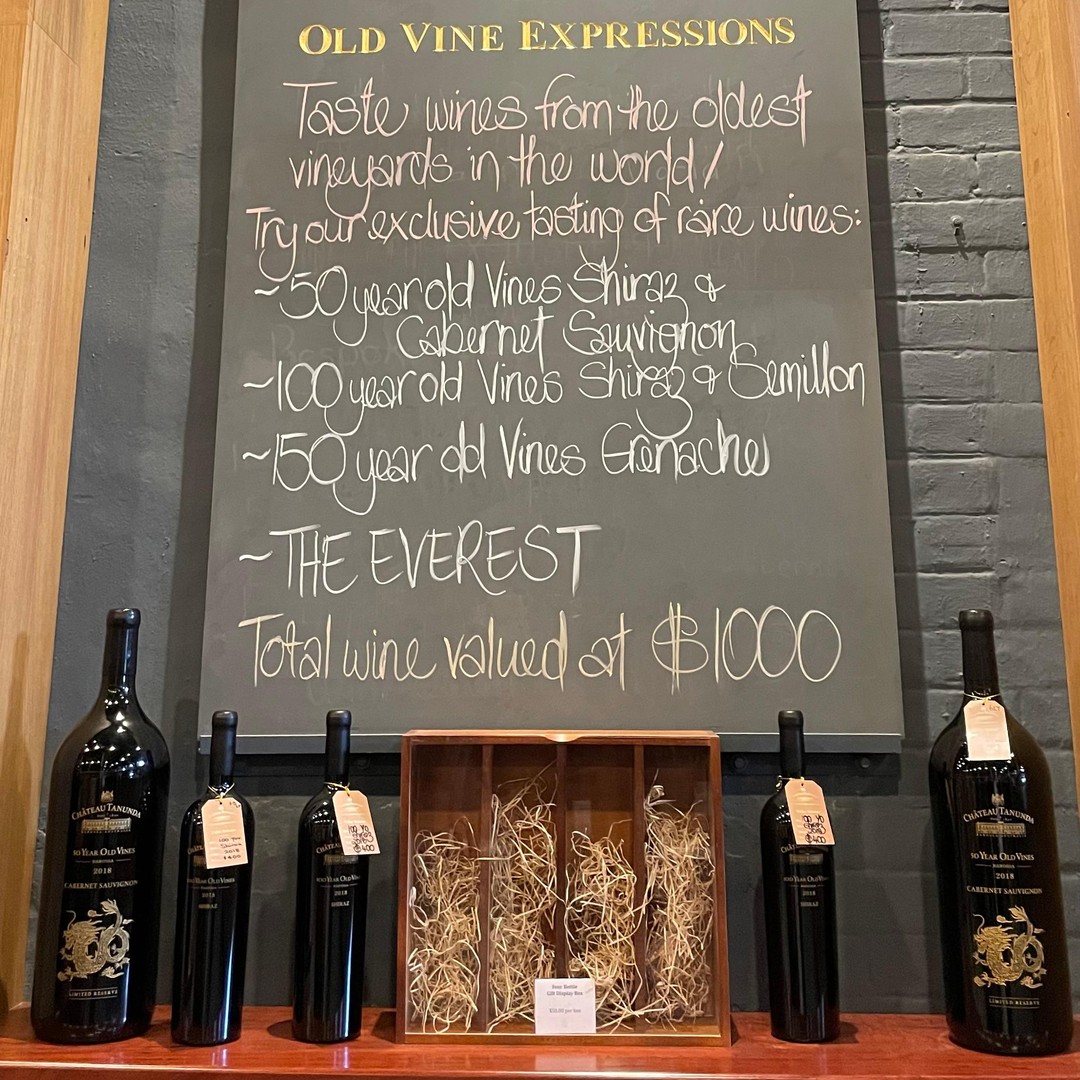 OLD VINE EXPRESSIONS
Taste wines from the oldest
vineyards in the world!
Try our exclusive tasting of rare wines:
~50 year old Vines Shiraz &
Cabernet Sauvignon
~100 year old Vines Shiraz & Semillon
~150 year old Vines Grenache
~THE EVEREST
Total wine valued at $1000
CHÂTEAU TANUNDA
50 YEAR OLD VINES
BAROSSA
2018
CABERNET SAUVIGNON
LIMITED RESERVE
100 Year
Shiraz
2018
$400
YEAR OLD VINES
2018
SHIRAZ
100 YO
$400
CHÂTEAU
100 YEAR OLD VINES
2018
SHIRAZ
Gift Display Box
$50.00 per box
100 YO
$400
CHÂTEAU
100 YEAR OLD VINES
2018
SHIRAZ
CHÂTEAU TANUNDA
50 YEAR OLD VINES
BAROSSA
2018
CABERNET SAUVIGNON
LIMITED RESERVE